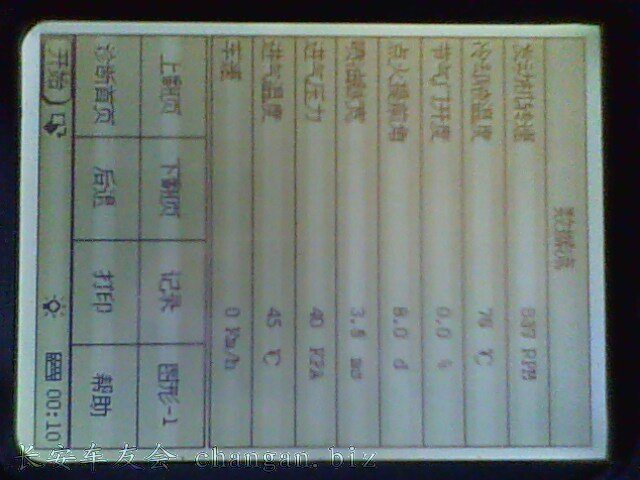 数据流
发动机转速 887 RPM
冷却液温度 76 ℃
节气门开度 0.0 %
点火提前角 8.0 d
喷油脉宽 3.5 ms
进气压力 40 KPA
进气温度 45 ℃
车速 0 Km/h
上翻页 下翻页 记录 图形-1
诊断首页 后退 打印 帮助
开始 00:10
长安车友会 changan.biz